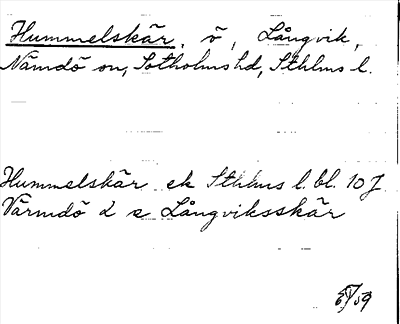 Hummelskär, ö, Långvik,
Nämdö sn, Sotholms hd, Sthlms l.
Hummelskär ek Sthlms l. bl. 10 J
Värmdö d s Långviksskär